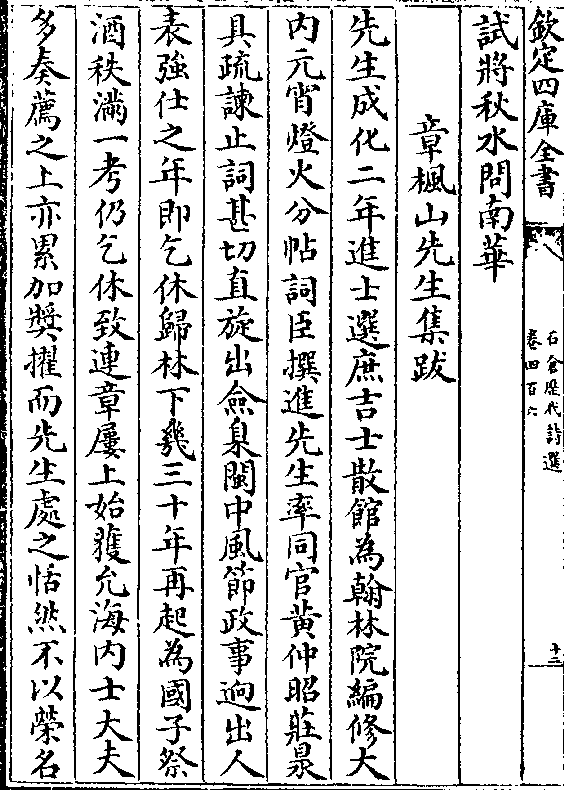 欽定四庫全書
石倉歷代詩選
卷四百六
十三
試將秋水問南華
章楓山先生集跋
先生成化二年進士選庶吉士散館為翰林院編修大
内元宵燈火分帖詞臣撰進先生率同官黄仲昭莊㫤
具疏諫止詞甚切直旋出僉臬閩中風節政事逈出人
表強仕之年即乞休歸林下幾三十年再起為國子祭
酒秩滿一考仍乞休致連章屢上始獲允海内士大夫
多奏薦之上亦累加獎擢而先生處之恬然不以榮名